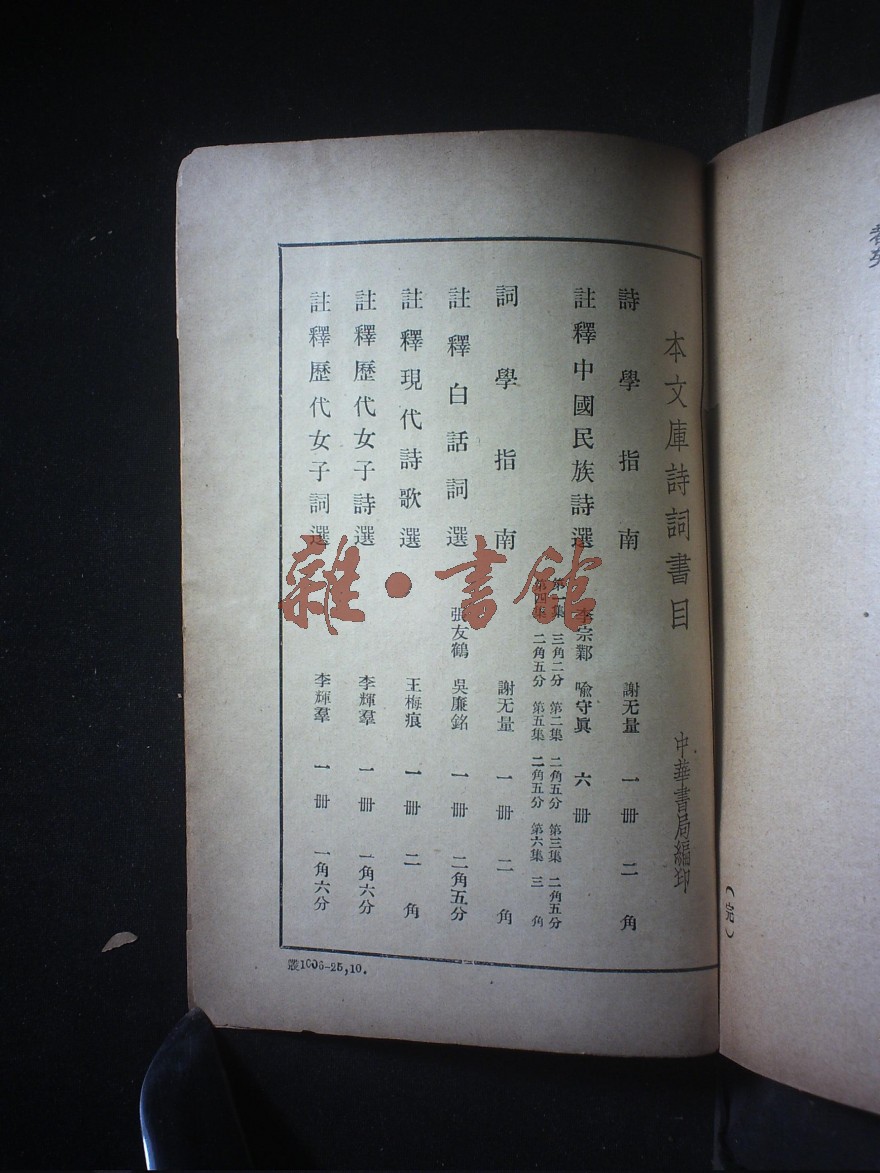 本文庫詩詞書目
中華書局編印
詩學指南 謝无量 一册 二角
註釋中國民族詩選 李宗鄴 喩守眞 六册
第一集 三角二分 第二集 二角五分 第三集 二角五分
第四集 二角五分 第五集 二角五分 第六集 三角
詞學指南 謝无量 一册 二角
註釋白話詞選 張友鶴 吳廉銘 一册 二角五分
註釋現代詩歌選 王梅痕 一册 二角
註釋歷代女子詩選 李輝羣 一册 一角六分
註釋歷代女子詞選 李輝羣 一册 一角六分
叢1006-25,10.
(完)
雜·書館